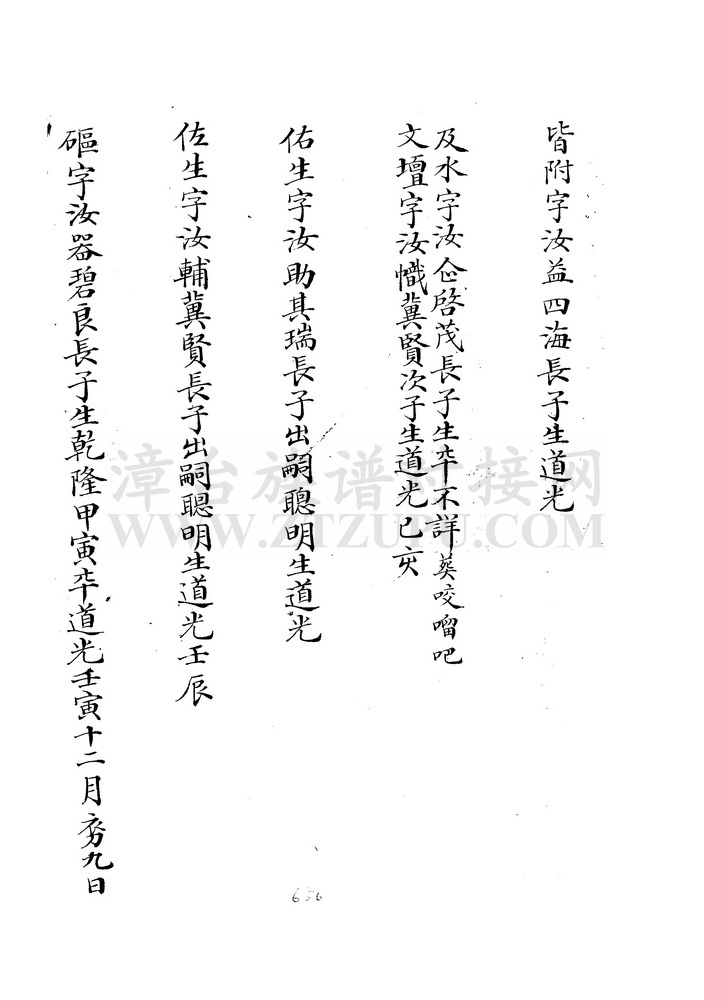 皆附字汝益四海長子生道光
及水字汝企啓茂長子生卒不詳葬咬𠺕吧
文壇字汝幟冀賢次子生道光己亥
佑生字汝助其瑞長子出嗣聰明生道光
佐生字汝輔冀賢長子出嗣聰明生道光壬辰
磘字汝器碧良長子生乾隆甲寅卒道光壬寅十二月初九日
漳台族谱对接网
WWW.ZTZUPU.COM
656